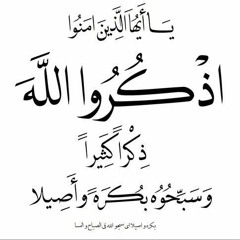 يَا أَيُّهَا الَّذِينَ آمَنُوا
اذْكُرُوا اللَّهَ
ذِكْرًا كَثِيرًا
وَسَبِّحُوهُ بُكْرَةً وَأَصِيلًا
بكرة و اصيلا اى سبحو الله فى الصباح و المسا